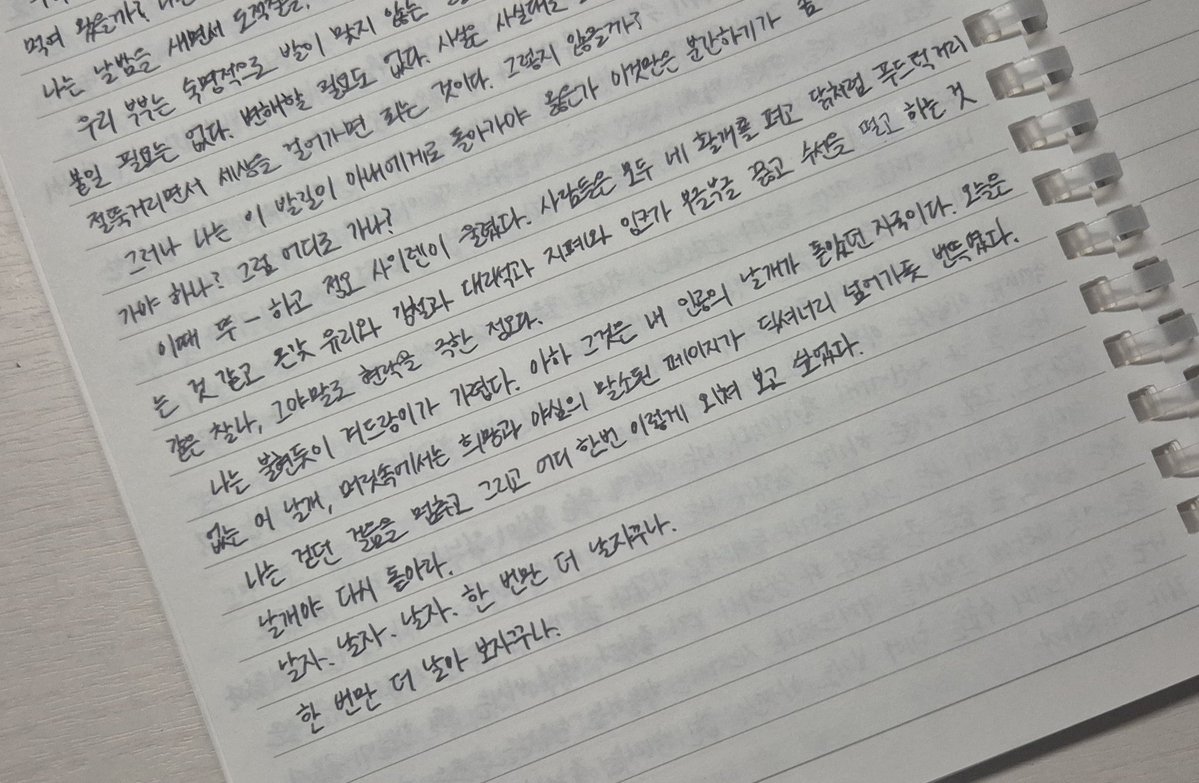 먹여 왔을까? 나는
나는 날밤을 새면서 도적질을
우리 부부는 숙명적으로 발이 맞지 않는
붙일 필요는 없다. 변해할 필요도 없다. 사실은 사실대로
절뚝거리면서 세상을 걸어가면 되는 것이다. 그렇지 않을까?
그러나 나는 이 발길이 아내에게로 돌아가야 옳은가 이것만은 분간하기가
가야 하나? 그럼 어디로 가나?
이때 뚜 — 하고 정오 사이렌이 울렸다. 사람들은 모두 네 활개를 펴고 닭처럼 푸드덕거리
는 것 같고 온갖 유리와 강철과 대리석과 지폐와 잉크가 부글부글 끓고 수선을 떨고 하는 것
같은 찰나, 그야말로 현란을 극한 정오다.
나는 불현듯이 겨드랑이가 가렵다. 아하 그것은 내 인공의 날개가 돋았던 자국이다. 오늘은
없는 이 날개, 머릿속에서는 희망과 야심의 말소된 페이지가 딕셔너리 넘어가듯 번뜩였다.
나는 걷던 걸음을 멈추고 그리고 어디 한번 이렇게 외쳐 보고 싶었다.
날개야 다시 돋아라.
날자. 날자. 날자. 한 번만 더 날자꾸나.
한 번만 더 날아 보자꾸나.